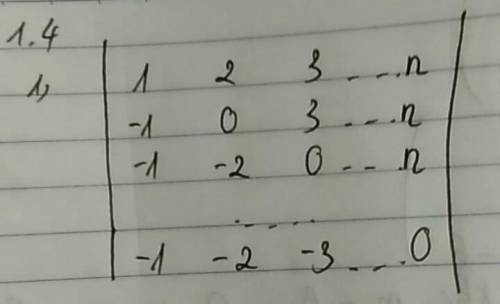 1.4
1, 1 2 3 ... n
-1 0 3 ... n
-1 -2 0 ... n
....
-1 -2 -3 ... 0